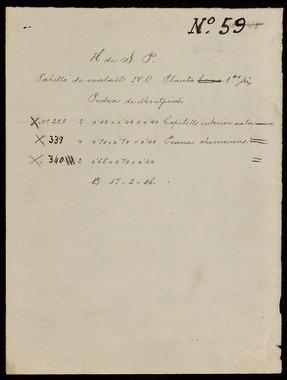 Nº 59
H de S. P
Pabelló de malalts N.O Planta 1er pis
Pedra de
Nº 228 2 0'46 x 0'46 x 0'40 Capitells interior sala
339 4 0'70 x 0'70 x 0'40 Peana
340 2 0'65 x 0'70 x 0'40
B 17-2-06.